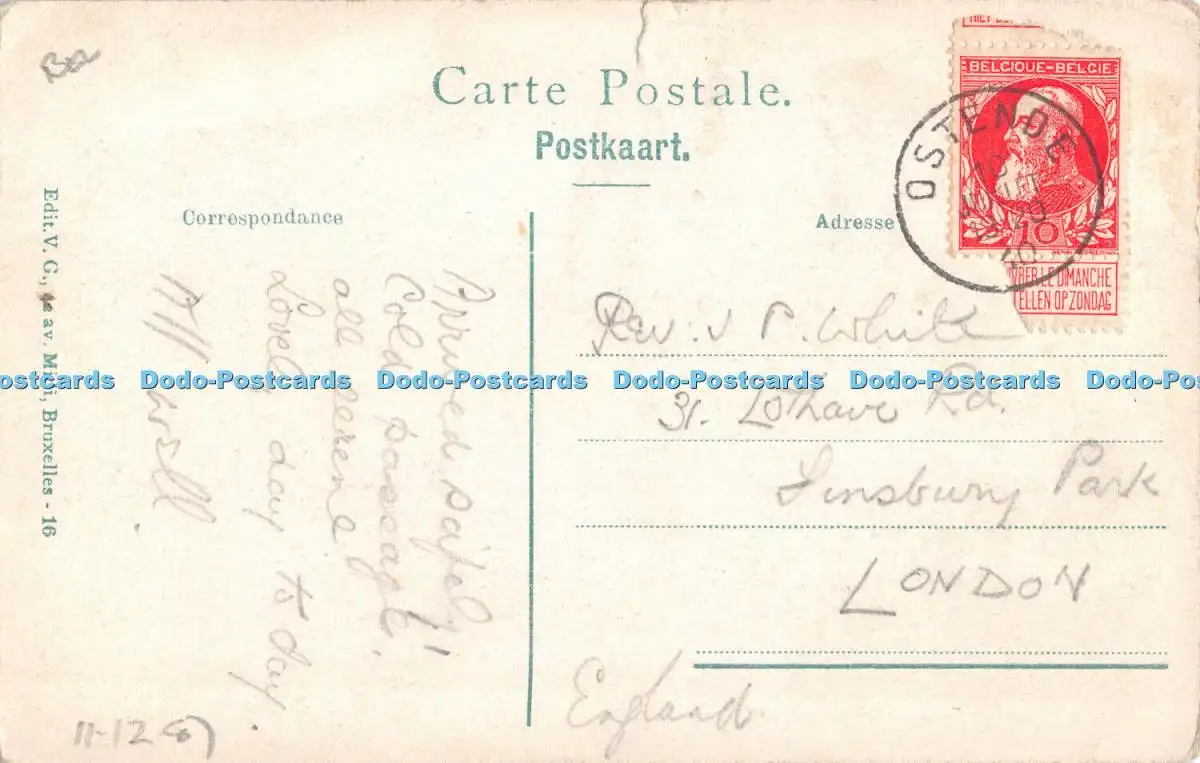 Ba
Carte Postale.
Postkaart.
BELGIQUE-BELGIE
10
OSTENDE
10
10
DIMANCHE
OP ZONDAG
Correspondance
Adresse
Edit. V. G., av. Midi, Bruxelles - 16
Arrived safely
Cold passage,
all serene
Lovely day to day.
All well
Rev. J P. White
31. Lothair Rd.
Finsbury Park
LONDON
England.
Dodo-Postcards Dodo-Postcards Dodo-Postcards Dodo-Postcards Dodo-Postcards
11-12